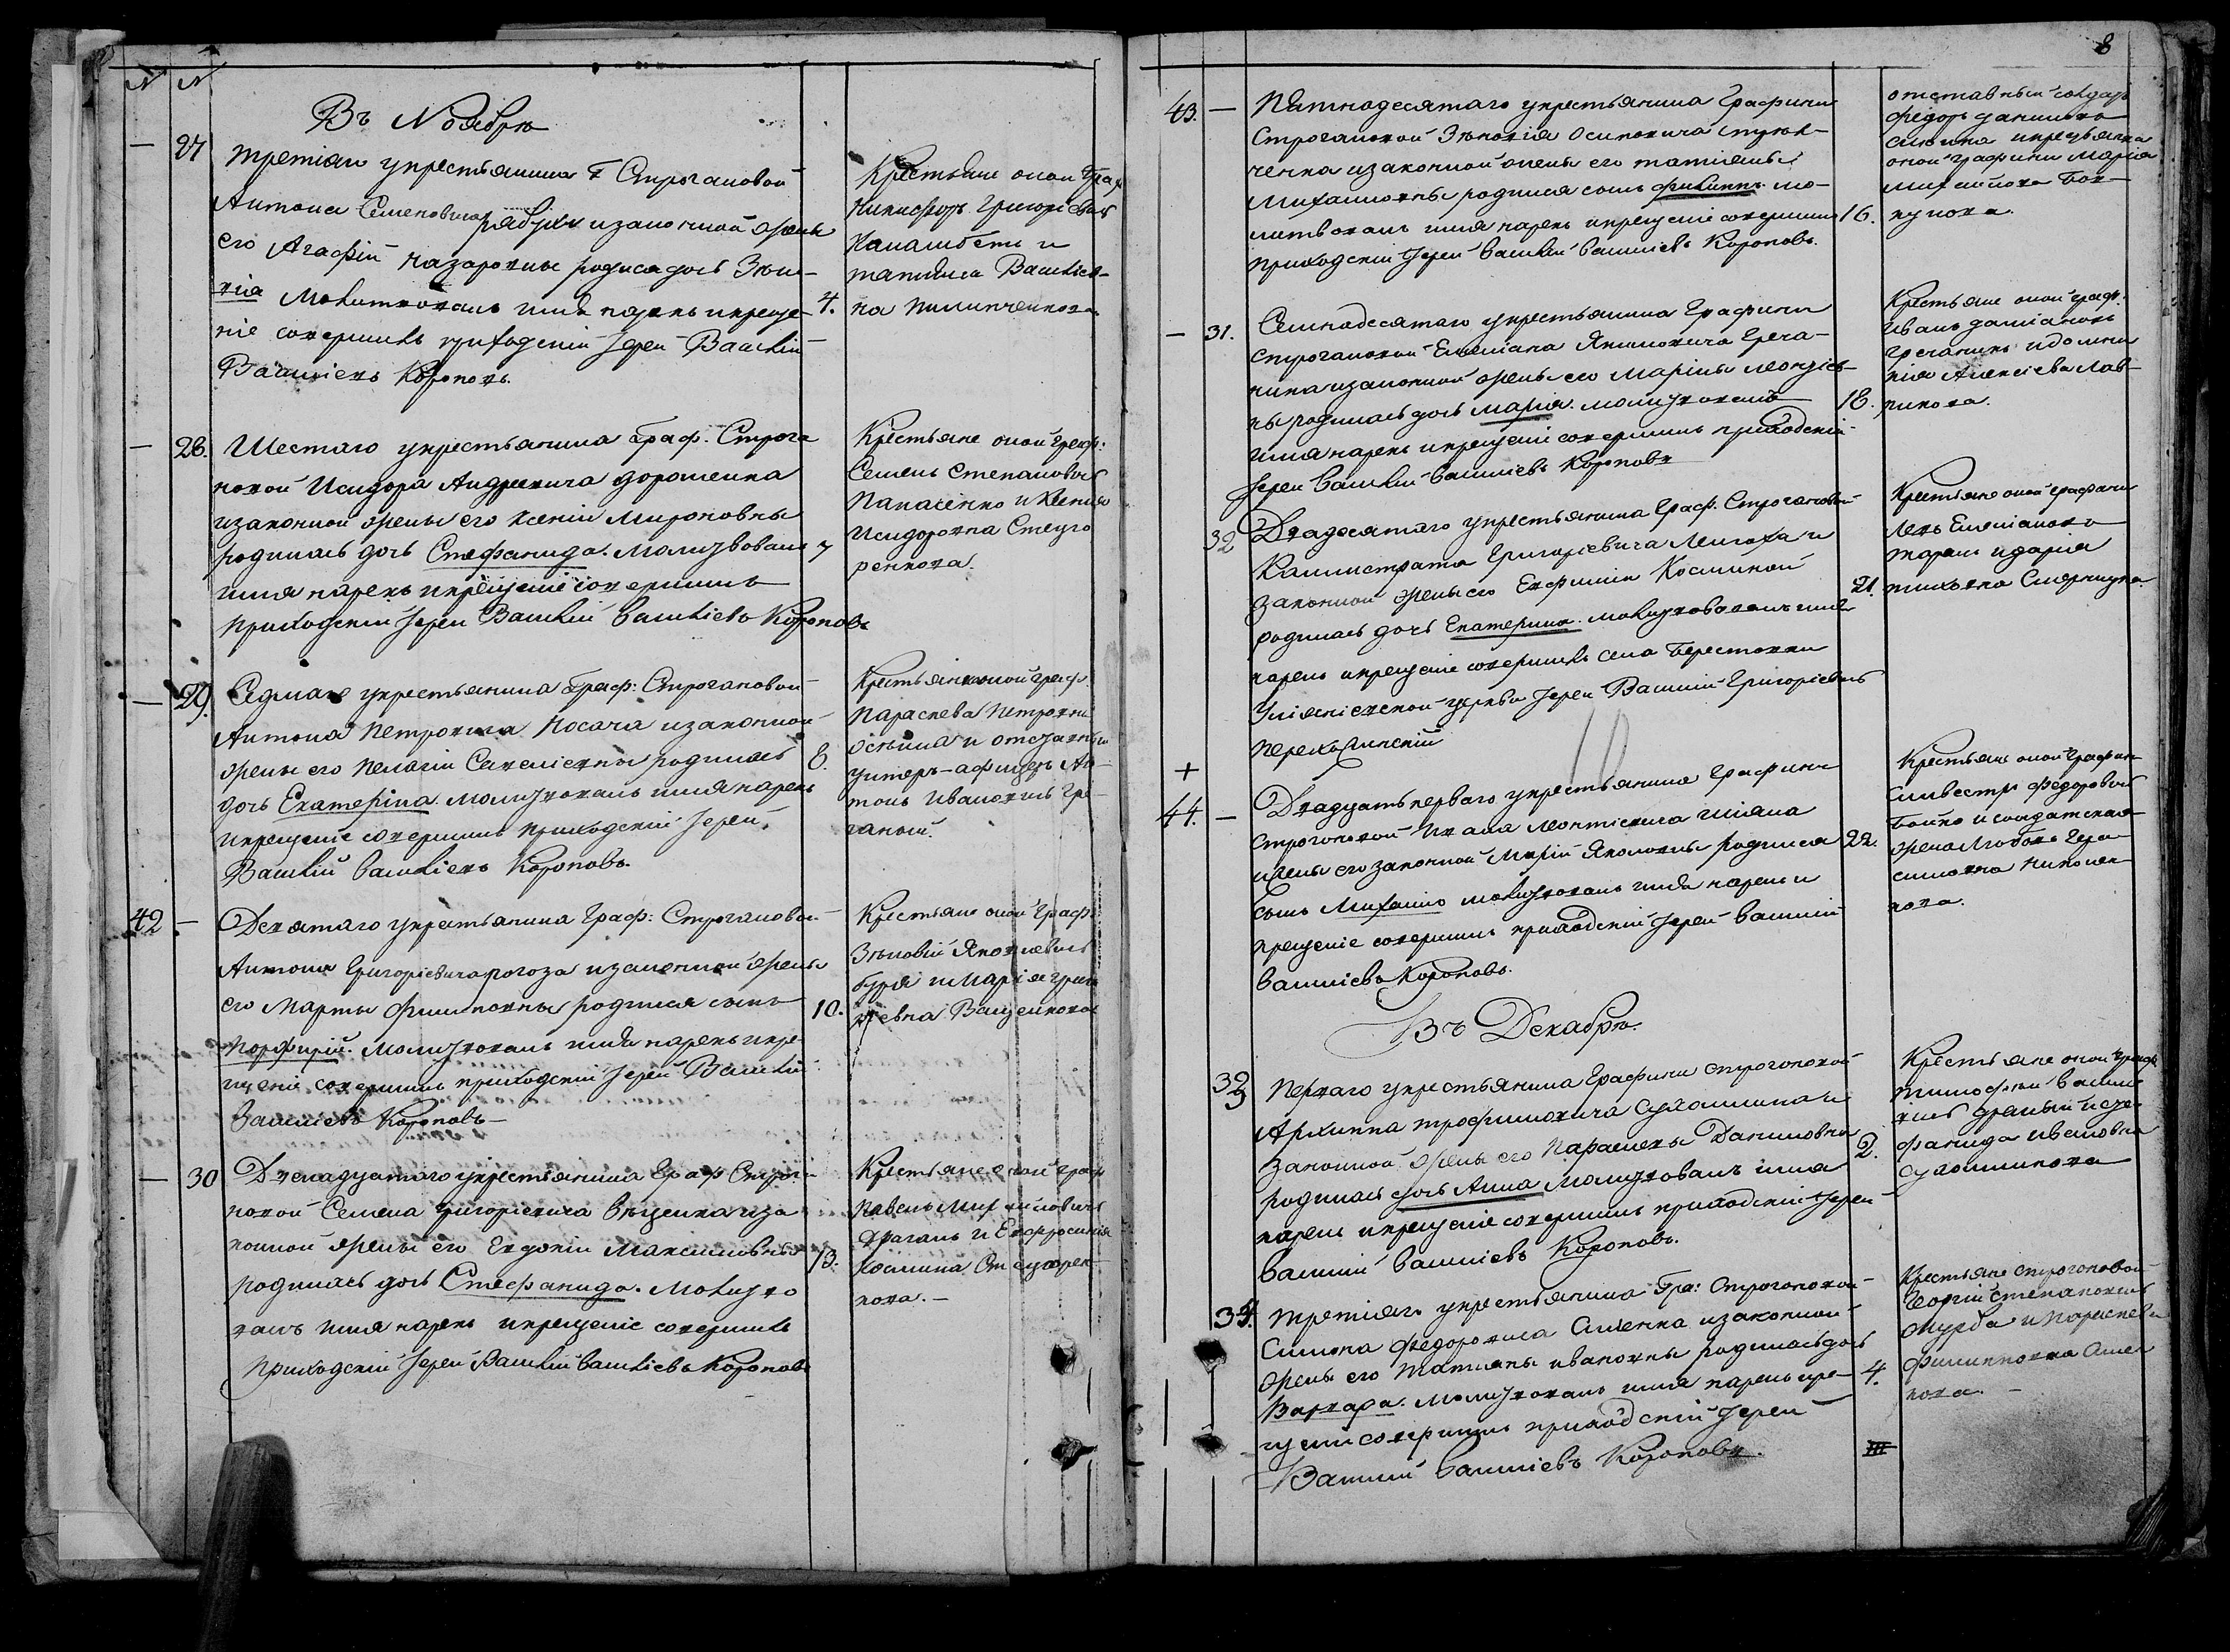 N N
Въ Ноябрѣ
— 27
третіяго у крестьянина Г Строгановой
Антона Семеновича Рябухи и законной жены
его Агафіи Назаровны родися дочь Зѣно-
вія Молитвовалъ имя нарекъ и креще-
ніе совершилъ приходскій Іерей Василій
Васильевъ Короповъ.
4.
Крестьяне оной Граф
Никифоръ Григоріевичъ
и
Василіев-
на Пилипченкова
— 28.
Шестаго у крестьянина Граф. Строга
новой Исидора Андреевича Дорошенка
и законной жены его Ксеніи Мироновны
родилась дочь Стефанида. Молитвовалъ
имя нарекъ и крещеніе совершилъ
приходскій Іерей Василій Васильевъ Короповъ
7
Крестьяне оной Граф:
Семенъ Степановичъ
Панасенко и Ксенія
Исидоровна
— 29.
Седмаго у крестьянина Граф: Строгановой
Антона Петровича Носача и законной
жены его Пелагіи Савеліевны родилась
дочь Екатерина. молитвовалъ имя нарекъ
и крещеніе совершилъ приходскій Іерей
Василій Васильевъ Короповъ.
8.
Крестьянка оной Граф.
Параскева Петровна
и отставный
унтеръ-афицеръ Ан-
тонъ Ивановичъ
42 —
Девятаго у крестьянина Граф: Строгановой
Антона Григоріевича Рогоза и законной жены
его Марты Филиповны родился сынъ
Порфирій. Молитвовалъ имя нарекъ и кре-
щеніе совершилъ приходскій Іерей Василій
Васильевъ Короповъ —
10.
Крестьяне оной Граф
Зѣновій Яковлевичъ
Буря и Марія Григо
ріевна Ващенкова
— 30
Двенадцатаго у крестьянина Граф Строга
новой Семена Григоріевича и за
конной жены его Евдокіи Максимовны
родилась дочь Стефанида. Молитво
валъ имя нарекъ и крещеніе совершилъ
приходскій Іерей Василій Васильевъ Короповъ
13.
Крестьяне оной Граф
Павелъ Михайловичъ
Драганъ и Евфросинія
Космина
нова. —
8
43. —
Пятнадесятаго у крестьянина Графини
Строгановой Зѣновія Осиповича
ченка и законной жены его Татіяны
Михайловны родился сынъ Филиппъ мо-
литвовалъ имя нарекъ и крещеніе совершилъ
приходскій Іерей Василій Васильевъ Короповъ.
16.
отставный солдатъ
Федоръ Даниловъ
и крестьянка
оной графини Марія
Михайлова
— 31.
Семнадесятаго у крестьянина Графини
Строгановой Емеліана Якимовича Греча-
нина и законной жены его Маріны Леонтіев-
ны родилась дочь Марія. молитвовалъ
имя нарекъ и крещеніе совершилъ приходскій
Іерей Василій Васильевъ Короповъ
18.
Крестьяне оной Граф.
Иванъ Даміановъ
Гречанинъ и Домни
кія Алексіева Лав-
рикова.
32
Двадесятаго у крестьянина Граф. Строгановой
Каллистрата Григоріевича и
законной жены его Евфиміи Косминой
родилась дочь Екатерина. молитвовалъ имя
нарекъ и крещеніе совершилъ села Берестовки
церкви Іерей Василій Григоріевичъ
21.
Крестьяне оной Графини
Емеліанова
и Дарія
10
+
44. —
Двадцать перваго у крестьянина Графини
Строгановой Ивана Леонтіевича
жены его законной Маріи Яковлевны родился
сынъ Михаилъ молитвовалъ имя нарекъ и
крещеніе совершилъ приходскій Іерей Василій
Васильевъ Короповъ.
22.
Крестьяне оной Графини
Силвестръ Федоровичъ
Бойко и солдатская
жена Любовь Гера-
симовна
Въ Декабрѣ.
33
Перваго у крестьянина Графини Строгоновой
Архиппа Трофимовича Сухомлина и
законной жены его Параскевы Даниловны
родилась дочь Анна Молитвовалъ имя
нарекъ и крещеніе совершилъ приходскій Іерей
Василій Васильевъ Короповъ.
2.
Крестьяне оной Граф
Тимофей Василіе
вичъ и Сте-
фанида Ивановна
Сухомлинова
34.
Третіяго у крестьянина Гра: Строгоновой
Симона Федоровича и законной
жены его Татіяны Ивановны родилась дочь
Варвара. молитвовалъ имя нарекъ кре-
щеніе совершилъ приходскій Іерей
Василій Васильевъ Короповъ.
4.
Крестьяне Строгоновой
Георгій Степановичъ
и Параскева
Филипповна